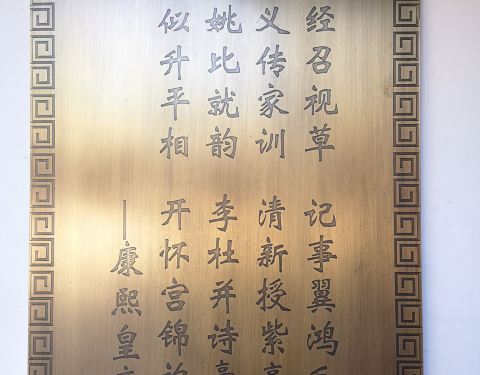 经召视草 记事翼鸿
义传家训 清新授紫
姚比就韵 李杜并诗
似升平相 开怀宫锦
——康熙皇